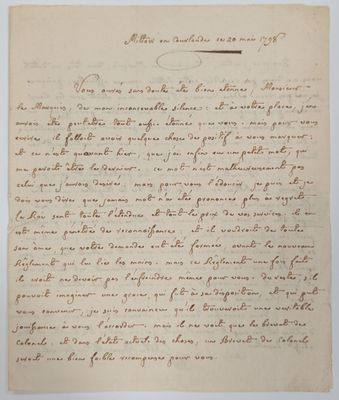 Mittau en Courlande ce 20 mai 1798
Vous aurés sans doute été bien étonné, Monsieur
le Marquis, de mon inconcevable silence: et à votre place, j'en
aurois été peutetre tout aussi étonné que vous: mais pour vous
ecrire il falloit avoir quelque chose de positif à vous marquer:
et ce n'est qu'avant hier, que j'ai enfin eu un petit mot, qui
me paroit être le dernier. ce mot n'est malheureusement pas
celui que j'aurois desiré. mais pour vous l'adoucir, je puis et je
dois vous dire que jamais mot n'a été prononcé plus a regret
le Roy sent toute l'étendue et tout le prix de vos services. il en
est même penetré de reconnoissance: et il voudroit de toute
son ame que votre demande eut été formée, avant le nouveau
Réglement qui lui lie les mains. mais ce Réglement une fois fait
il croit ne devoir pas l'enfreindre même pour vous. du reste, s'il
pouvoit imaginer une grace, qui fut à sa disposition, et qui put
vous convenir, je suis convaincu qu'il trouveroit une veritable
jouissance à vous l'accorder. mais il ne voit que le brevet de
Colonel: et dans l'état actuel des choses, un Brevet de Colonel
seroit une bien foible recompense pour vous.